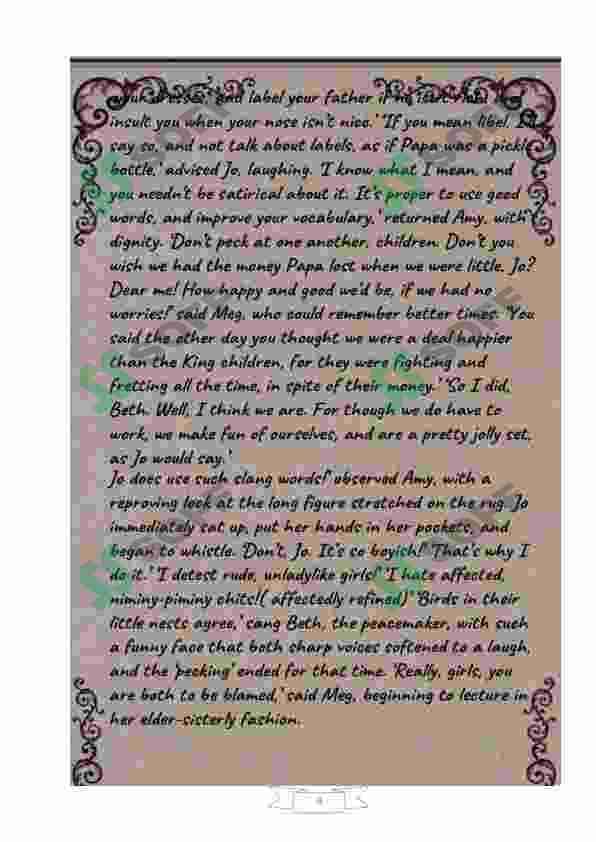 your dresses,' and label your father if he isn't rich,
insult you when your nose isn't nice.' 'If you mean libel, I'd
say so, and not talk about labels, as if Papa was a pickle
bottle,' advised Jo, laughing. 'I know what I mean, and
you needn't be satirical about it. It's proper to use good
words, and improve your vocabulary,' returned Amy, with
dignity. 'Don't peck at one another, children. Don't you
wish we had the money Papa lost when we were little, Jo?
Dear me! How happy and good we'd be, if we had no
worries!' said Meg, who could remember better times. 'You
said the other day you thought we were a deal happier
than the King children, for they were fighting and
fretting all the time, in spite of their money.' 'So I did,
Beth. Well, I think we are. For though we do have to
work, we make fun of ourselves, and are a pretty jolly set,
as Jo would say.'
Jo does use such slang words!' observed Amy, with a
reproving look at the long figure stretched on the rug. Jo
immediately sat up, put her hands in her pockets, and
began to whistle. 'Don't, Jo. It's so boyish!' 'That's why I
do it.' 'I detest rude, unladylike girls!' 'I hate affected,
niminy-piminy chits!( affectedly refined)' 'Birds in their
little nests agree,' sang Beth, the peacemaker, with such
a funny face that both sharp voices softened to a laugh,
and the 'pecking' ended for that time. 'Really, girls, you
are both to be blamed,' said Meg, beginning to lecture in
her elder-sisterly fashion.